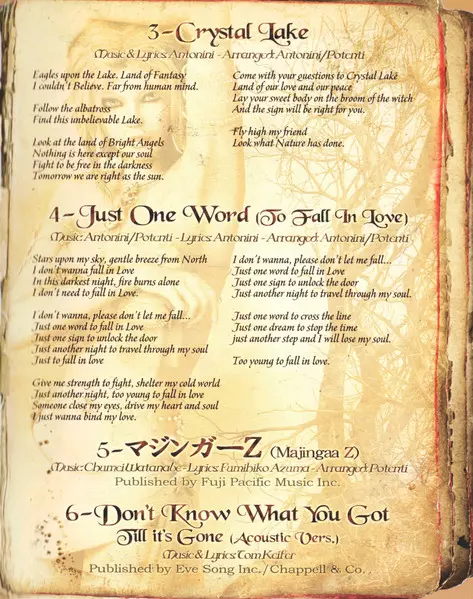 3-Crystal Lake
Music & Lyrics: Antonini - Arranged: Antonini/Potenti
Eagles upon the Lake. Land of Fantasy
I couldn't Believe. Far from human mind.
Follow the albatross
Find this unbelievable Lake.
Look at the land of Bright Angels
Nothing is here except our soul
Fight to be free in the darkness
Tomorrow we are right as the sun.
Come with your questions to Crystal Lake
Land of our love and our peace
Lay your sweet body on the broom of the witch
And the sign will be right for you.
Fly high my friend
Look what Nature has done.
4-Just One Word (To Fall In Love)
Music: Antonini/Potenti - Lyrics: Antonini - Arranged: Antonini/Potenti
Stars upon my sky, gentle breeze from North
I don't wanna fall in Love
In this darkest night, fire burns alone
I don't need to fall in Love.
I don't wanna, please don't let me fall...
Just one word to fall in Love
Just one sign to unlock the door
Just another night to travel through my soul
Just to fall in love
Give me strength to fight, shelter my cold world
Just another night, too young to fall in love
Someone close my eyes, drive my heart and soul
I just wanna bind my love.
I don't wanna, please don't let me fall...
Just one word to fall in Love
Just one sign to unlock the door
Just another night to travel through my soul.
Just one word to cross the line
Just one dream to stop the time
just another step and I will lose my soul.
Too young to fall in love.
5-マジンガーZ (Majingaa Z)
Music: Chumei Watanabe - Lyrics: Fumihiko Azuma - Arranged: Potenti
Published by Fuji Pacific Music Inc.
6-Don't Know What You Got
Till it's Gone (Acoustic Vers.)
Music & Lyrics: Tom Keifer
Published by Eve Song Inc./Chappell & Co.